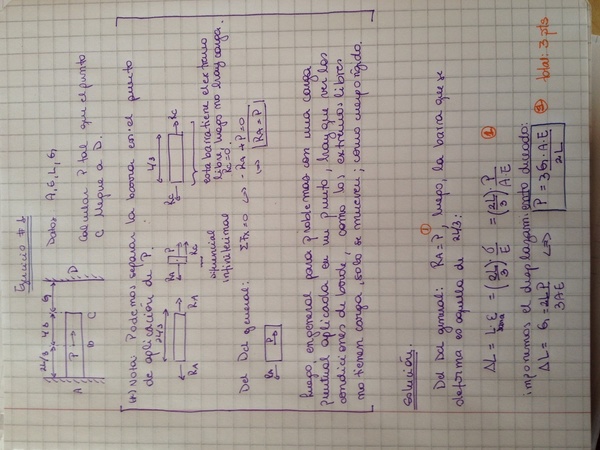 Ejercicio #1
2L/3 L/3 δ
A P B C D
Datos A, E, L, δ
Calcular P tal que el punto
C llegue a D.
(*) Nota: Podemos separar la barra en el punto
de aplicación de P.
2L/3
RA RA
RA P RC
diferencial
infinitesimal
L/3
RC RC
esta barra tiene el extremo
libre, luego no hay carga.
RC=0
Del DCL general: ΣFx=0 ↔ -RA+P=0
↔ RA=P
RA P
luego en general para problemas con una carga
puntual aplicada en un punto, hay que ver las
condiciones de borde, como los extremos libres
no tienen carga, solo se mueven; como cuerpo rígido.
Solución.
Del DCL general: RA=P, luego, la barra que se ①
deforma es aquella de 2L/3:
ΔL = L·ε = (2L/3) σ/E = (2L/3)·P/A·E ②
imponemos el desplazamiento deseado:
ΔL = δ = 2LP/3AE ⟺ P = 3δ·A·E/2L ③ total: 3 pts